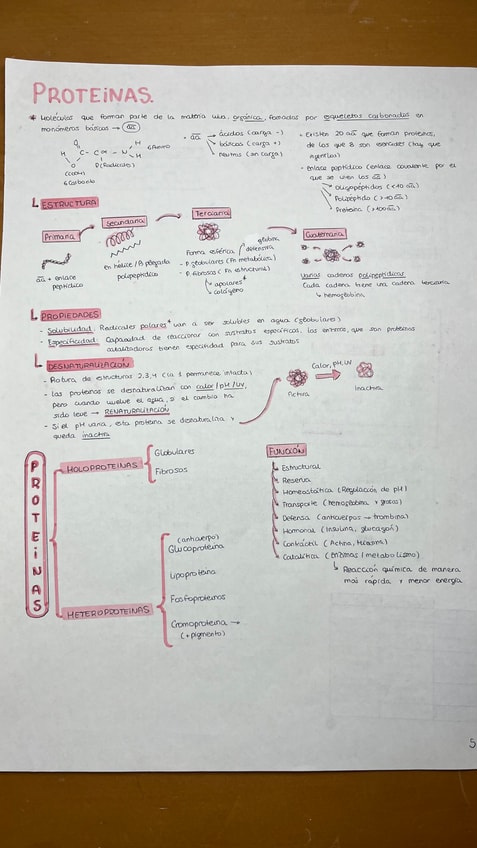 PROTEINAS.
* Moléculas que forman parte de la materia viva, orgánica, formadas por esqueletos carbonados en
monómeros básicos → aa
O H
H C - Cα - N G.Amino
O R(Radical) H
(COOH)
G.Carboxilo
- aa → ácidos (carga -)
básicos (carga +)
neutros (sin carga)
+ Existen 20 aa que forman proteinas,
de los que 8 son esenciales (hay que
ingerirlos)
- Enlace peptídico (enlace covalente por el
que se unen los aa)
→ Oligopéptidos (<10 aa)
→ Polipéptido (>10 aa)
→ Proteina (>100 aa)
ESTRUCTURA
Primaria
aa + enlace
peptídico
Secundaria
en hélice / β plegada
polipeptídica
Terciaria
Forma esférica
globina
defensiva
- P. globulares (Fn metabólica)
- P. fibrosos (Fn estructural)
→ apolares
→ colágeno
Cuaternaria
Varias cadenas polipeptídicas.
Cada cadena tiene una cadena terciaria
↳ hemoglobina
PROPIEDADES
- Solubilidad: Radicales polares + van a ser solubles en agua (globulares)
- Especificidad: Capacidad de reaccionar con sustratos específicos, las enzimas, que son proteinas
catalizadoras tienen especifidad para sus sustratos
DESNATURALIZACIÓN
- Rotura de estructuras 2,3,4 (la 1 permanece intacta)
- Las proteinas se desnaturalizan con calor/pH/UV,
pero cuando vuelve el agua, si el cambio ha
sido leve → RENATURALIZACIÓN
- Si el pH varia, esta proteina se desnaturaliza y
queda inactiva
Activa
Calor, pH, UV
Inactiva
PROTEINAS
HOLOPROTEINAS
Globulares
Fibrosos
HETEROPROTEINAS
(anticuerpo)
Glucoproteina
Lipoproteina
Fosfoproteinas
Cromoproteina →
(+ pigmento)
FUNCIÓN
Estructural
Reserva
Homeostática (Regulación de pH)
Transporte (hemoglobina y grasas)
Defensa (anticuerpos → trombina)
Hormonal (Insulina, glucagón)
Contráctil (Actina, miosina)
Catalítica (enzimas / metabolismo)
↳ Reacción química de manera
mas rapida y menor energía
5